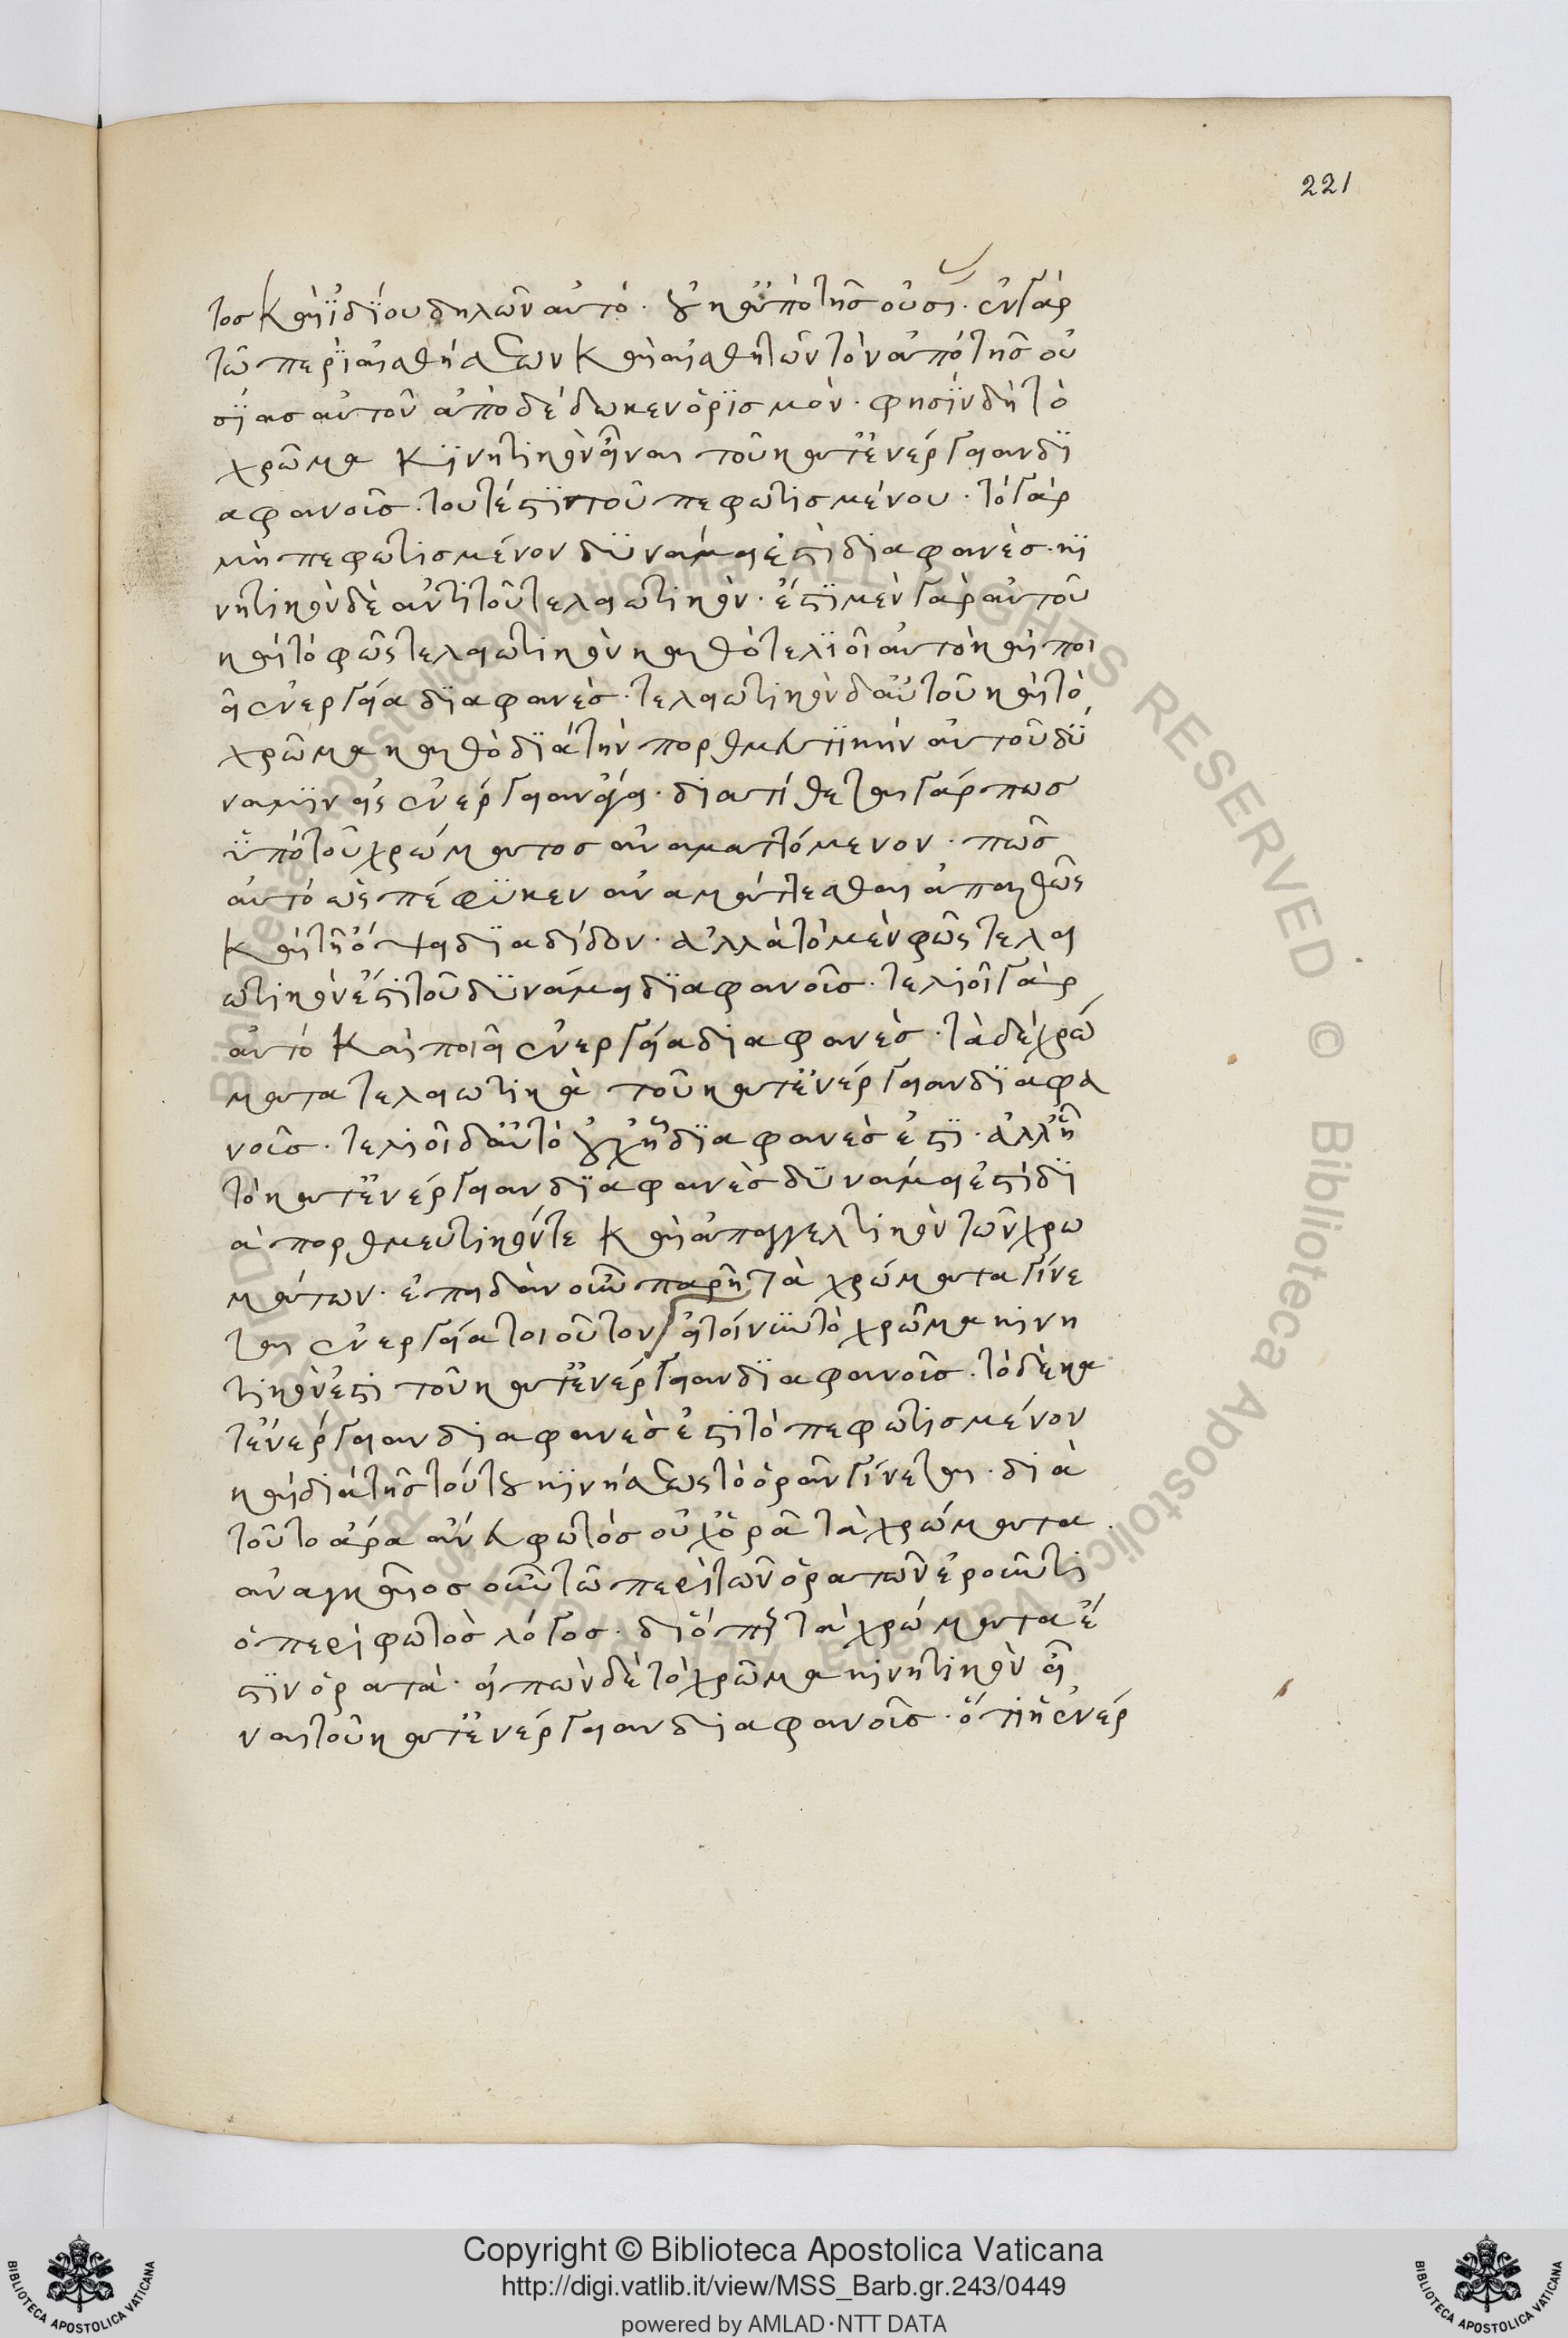 221
τος καὶ ἰδίου δηλῶν αὐτό. οὐκ ἀπὸ τῆς οὐσί. ἐν γὰρ
τῶ περὶ αἰσθήσεων καὶ αἰσθητῶν τὸν ἀπὸ τῆς οὐ
σίας αὐτοῦ ἀποδέδωκεν ὁρισμόν. φησὶν δὴ τὸ
χρῶμα κινητικὸν εἶναι τοῦ κατ' ἐνέργειαν δι
αφανοῦς. τουτέστιν τοῦ πεφωτισμένου. τὸ γὰρ
μὴ πεφωτισμένον δυνάμει ἐστὶ διαφανὲς. κι
νητικὸν δὲ ἀντὶ τοῦ τελειωτικὸν. ἔστι μὲν γὰρ αὐτοῦ
καὶ τὸ φῶς τελειωτικὸν καθὸ τελειοῖ αὐτὸ καὶ ποι
εῖ ἐνεργεία διαφανὲς. τελειωτικὸν δ' αὐτοῦ καὶ τὸ
χρῶμα καθὸ διὰ τὴν πορθμευτικὴν αὐτοῦ δύ
ναμιν εἰς ἐνέργειαν ἄγει. διατίθεται γάρ πως
ὑπὸ τοῦ χρώματος ἀναματτόμενον. πῶς
αὐτό ὡς πέφυκεν ἀναμάττεσθαι ἀπαθῶς
καὶ τῆ ὄψει διαδίδον. ἀλλὰ τὸ μὲν φῶς τελει
ωτικὸν ἐστι τοῦ δυνάμει διαφανοῦς. τελειοῖ γὰρ
αὐτό καὶ ποιεῖ ἐνεργεία διαφανὲς. τὰ δὲ χρώ
ματα τελειωτικὰ τοῦ κατ' ἐνέργειαν διαφα
νοῦς. τελειοῖ δ' αὐτὸ οὐχ ἧ διαφανὲς ἐστι. ἀλλ' ἧ
τὸ κατ' ἐνέργειαν διαφανὲς δυνάμει ἐστὶ δι
ὰ πορθμευτικόν τε καὶ ἀπαγγελτικὸν τῶν χρω
μάτων. ἐπειδὰν οὖν παρῆ τὰ χρώματα γίνε
ται ἐνεργεία τοιοῦτον εἰ τοίνυν τὸ χρῶμα κινη
τικὸν ἐστι τοῦ κατ' ἐνέργειαν διαφανοῦς. τὸ δὲ κα
τ' ἐνέργειαν διαφανὲς ἐστι τὸ πεφωτισμένον
καὶ διὰ τῆς τούτου κινήσεως τὸ ὁρᾶν γίνεται. διὰ
τοῦτο ἄρα ἄνευ φωτὸς οὐχ ὁρᾶ τὰ χρώματα.
ἀναγκαῖος οὖν τῶ περὶ τῶν ὁρατῶν ἐροῦντι
ὁ περὶ φωτὸς λόγος. διό περ τὰ χρώματα ἐ
στιν ὁρατὰ. εἰπὼν δὲ τὸ χρῶμα κινητικὸν εἶ
ναι τοῦ κατ' ἐνέργειαν διαφανοῦς. ὅτι ἡ ἐνέρ
Copyright © Biblioteca Apostolica Vaticana
http://digi.vatlib.it/view/MSS_Barb.gr.243/0449
powered by AMLAD·NTT DATA